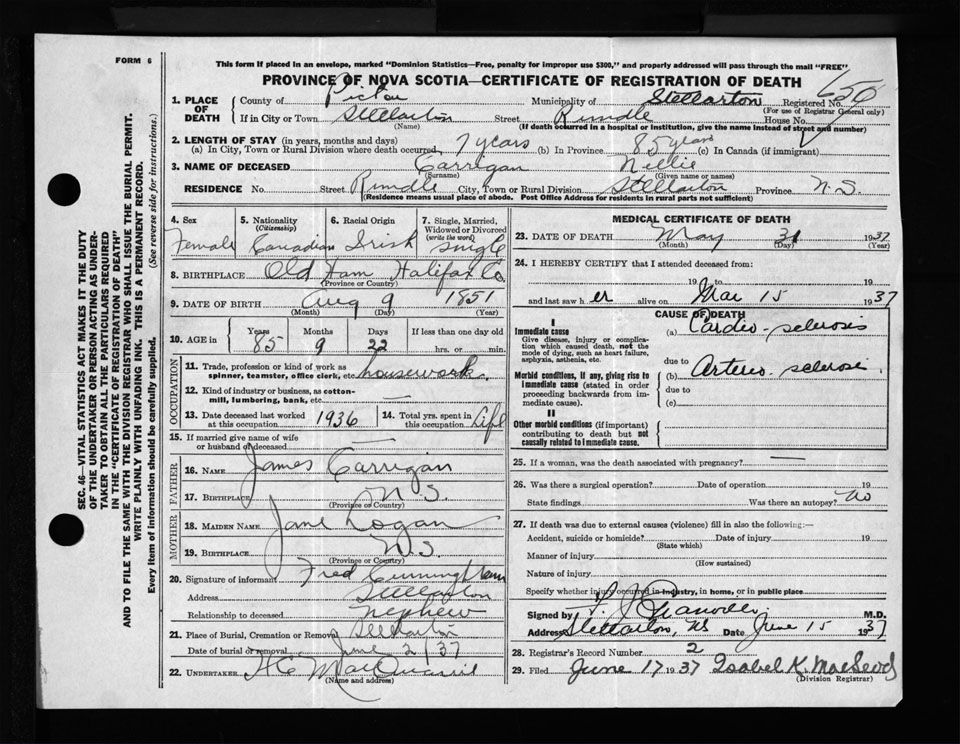 FORM 6
This form if placed in an envelope, marked "Dominion Statistics—Free, penalty for improper use $300," and properly addressed will pass through the mail "FREE"
PROVINCE OF NOVA SCOTIA—CERTIFICATE OF REGISTRATION OF DEATH
650
1. PLACE OF DEATH
County of Pictou Municipality of Stellarton Registered No.
(For use of Registrar General only)
If in City or Town Stellarton Street Rundle House No.
(Name) (If death occurred in a hospital or institution, give the name instead of street and number)
2. LENGTH OF STAY (in years, months and days)
(a) In City, Town or Rural Division where death occurred 7 years (b) In Province 85 years (c) In Canada (if immigrant)
3. NAME OF DECEASED Carrigan Nellie
(Surname) (Given name or names)
RESIDENCE No. Street Rundle City, Town or Rural Division Stellarton Province N.S.
(Residence means usual place of abode. Post Office Address for residents in rural parts not sufficient)
SEC. 46—VITAL STATISTICS ACT MAKES IT THE DUTY
OF THE UNDERTAKER OR PERSON ACTING AS UNDER-
TAKER TO OBTAIN ALL THE PARTICULARS REQUIRED
IN THE "CERTIFICATE OF REGISTRATION OF DEATH"
AND TO FILE THE SAME WITH THE DIVISION REGISTRAR WHO SHALL ISSUE THE BURIAL PERMIT.
WRITE PLAINLY WITH UNFADING INK. THIS IS A PERMANENT RECORD.
Every item of information should be carefully supplied. (See reverse side for instructions.)
4. Sex
Female
5. Nationality
(Citizenship)
Canadian
6. Racial Origin
Irish
7. Single, Married,
Widowed or Divorced
(write the word)
Single
8. BIRTHPLACE Old Ham Halifax Co.
(Province or Country)
9. DATE OF BIRTH Aug 9 1851
(Month) (Day) (Year)
10. AGE in
Years Months Days If less than one day old
85 9 22 hrs. or min.
OCCUPATION
11. Trade, profession or kind of work as
spinner, teamster, office clerk, etc. housework.
12. Kind of industry or business, as cotton-
mill, lumbering, bank, etc. —
13. Date deceased last worked
at this occupation 1936
14. Total yrs. spent in
this occupation Life
15. If married give name of wife
or husband of deceased —
FATHER
16. NAME James Carrigan
17. BIRTHPLACE N.S.
(Province or Country)
MOTHER
18. MAIDEN NAME Jane Logan
19. BIRTHPLACE N.S.
(Province or Country)
20. Signature of informant Fred Cunningham
Address Stellarton
Relationship to deceased nephew
21. Place of Burial, Cremation or Removal Stellarton
Date of burial or removal June 2/37
22. UNDERTAKER H.C.
(Name and address)
MEDICAL CERTIFICATE OF DEATH
23. DATE OF DEATH May 31 1937
(Month) (Day) (Year)
24. I HEREBY CERTIFY that I attended deceased from:
19 to 19
and last saw h er alive on Mar 15 1937
CAUSE OF DEATH
I
Immediate cause
Give disease, injury or complica-
tion which caused death, not the
mode of dying, such as heart failure,
asphyxia, asthenia, etc.
(a) Cardio-sclerosis
due to
Morbid conditions, if any, giving rise to
immediate cause (stated in order
proceeding backwards from im-
mediate cause).
(b) Arterio-sclerosis
due to
(c)
II
Other morbid conditions (if important)
contributing to death but not
causally related to immediate cause.
25. If a woman, was the death associated with pregnancy? —
26. Was there a surgical operation? Date of operation 19
State findings Was there an autopsy? No
27. If death was due to external causes (violence) fill in also the following:—
Accident, suicide or homicide? Date of injury 19
(State which)
Manner of injury
(How sustained)
Nature of injury
Specify whether injury occurred in industry, in home, or in public place
Signed by M.D.
Address Stellarton, NS Date June 15 1937
28. Registrar's Record Number 2
29. Filed June 17 1937 Isabel K. MacLeod
(Division Registrar)